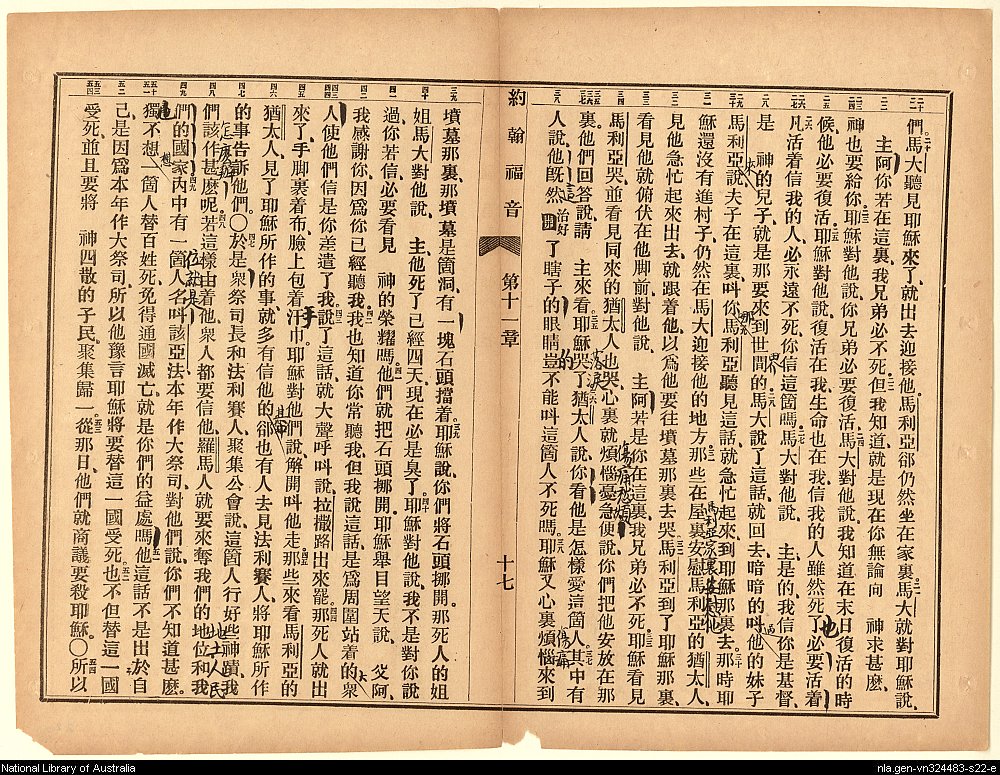 們、馬大聽見耶穌來了、就出去迎接他、馬利亞卻仍然坐在家裏、馬大就對耶穌說、
主阿、你若在這裏、我兄弟必不死、但我知道、就是現在你無論向　神求甚麼、
神也要給你、耶穌對他說、你兄弟必要復活、馬大對他說、我知道在末日復活的時
候、他必要復活、耶穌對他說、復活在我、生命也在我、信我的人、雖然死了、必要活着、
凡活着信我的人、必永遠不死、你信這箇嗎、馬大對他說、　主是的、我信你是基督、
是　神的兒子、就是那要來到世間的、馬大說了這話、就回去、暗暗的叫他的妹子
馬利亞說、夫子在這裏、叫你、馬利亞聽見這話、就急忙起來、到耶穌那裏去、那時耶
穌還沒有進村子、仍然在馬大迎接他的地方、那些在屋裏安慰馬利亞的猶太人、
見他急忙起來出去、就跟着他、以爲他要往墳墓那裏去哭、馬利亞到了耶穌那裏、
看見他、就俯伏在他脚前、對他說、　主阿、若是你在這裏、我兄弟必不死、耶穌看見
馬利亞哭、並看見同來的猶太人也哭、心裏就煩惱憂急、便說、你們把他安放在那
裏、他們回答說、請　主來看、耶穌哭了、猶太人說、你看他是怎樣愛這箇人、其中有
人說、他旣然開了瞎子的眼睛、豈不能叫這箇人不死嗎、耶穌又心裏煩惱、來到
約翰福音　第十一章　十七
墳墓那裏、那墳墓是箇洞、有一塊石頭擋着、耶穌說、你們將石頭挪開、那死人的姐
姐馬大對他說、　主、他死了已經四天、現在必是臭了、耶穌對他說、我不是對你說
過、你若信、必要看見　神的榮耀嗎、他們就把石頭挪開、耶穌舉目望天說、　父阿、
我感謝你、因爲你已經聽我、我也知道你常聽我、但我說這話、是爲周圍站着的衆
人、使他們信是你差遣了我、說了這話、就大聲呼叫說、拉撒路出來罷、那死人就出
來了、手脚裹着布、臉上包着汗巾、耶穌對他們說、解開、叫他走、那些來看馬利亞的
猶太人、見了耶穌所作的事、就多有信他的、卻也有人去見法利賽人、將耶穌所作
的事告訴他們、〇於是衆祭司長和法利賽人聚集公會說、這箇人行好些神蹟、我
們該作甚麼呢、若這樣由着他、衆人都要信他、羅馬人就要來奪我們的地位、和我
們的國家、內中有一箇人名叫該亞法、本年作大祭司、對他們說、你們不知道甚麼、
獨不想一箇人替百姓死、免得通國滅亡、就是你們的益處嗎、他這話不是出於自
己、是因爲本年作大祭司、所以他豫言耶穌將要替這一國受死、也不但替這一國
受死、並且要將　神四散的子民、聚集歸一、從那日他們就商議要殺耶穌、〇所以
National Library of Australia
nla.gen-vn324483-s22-e